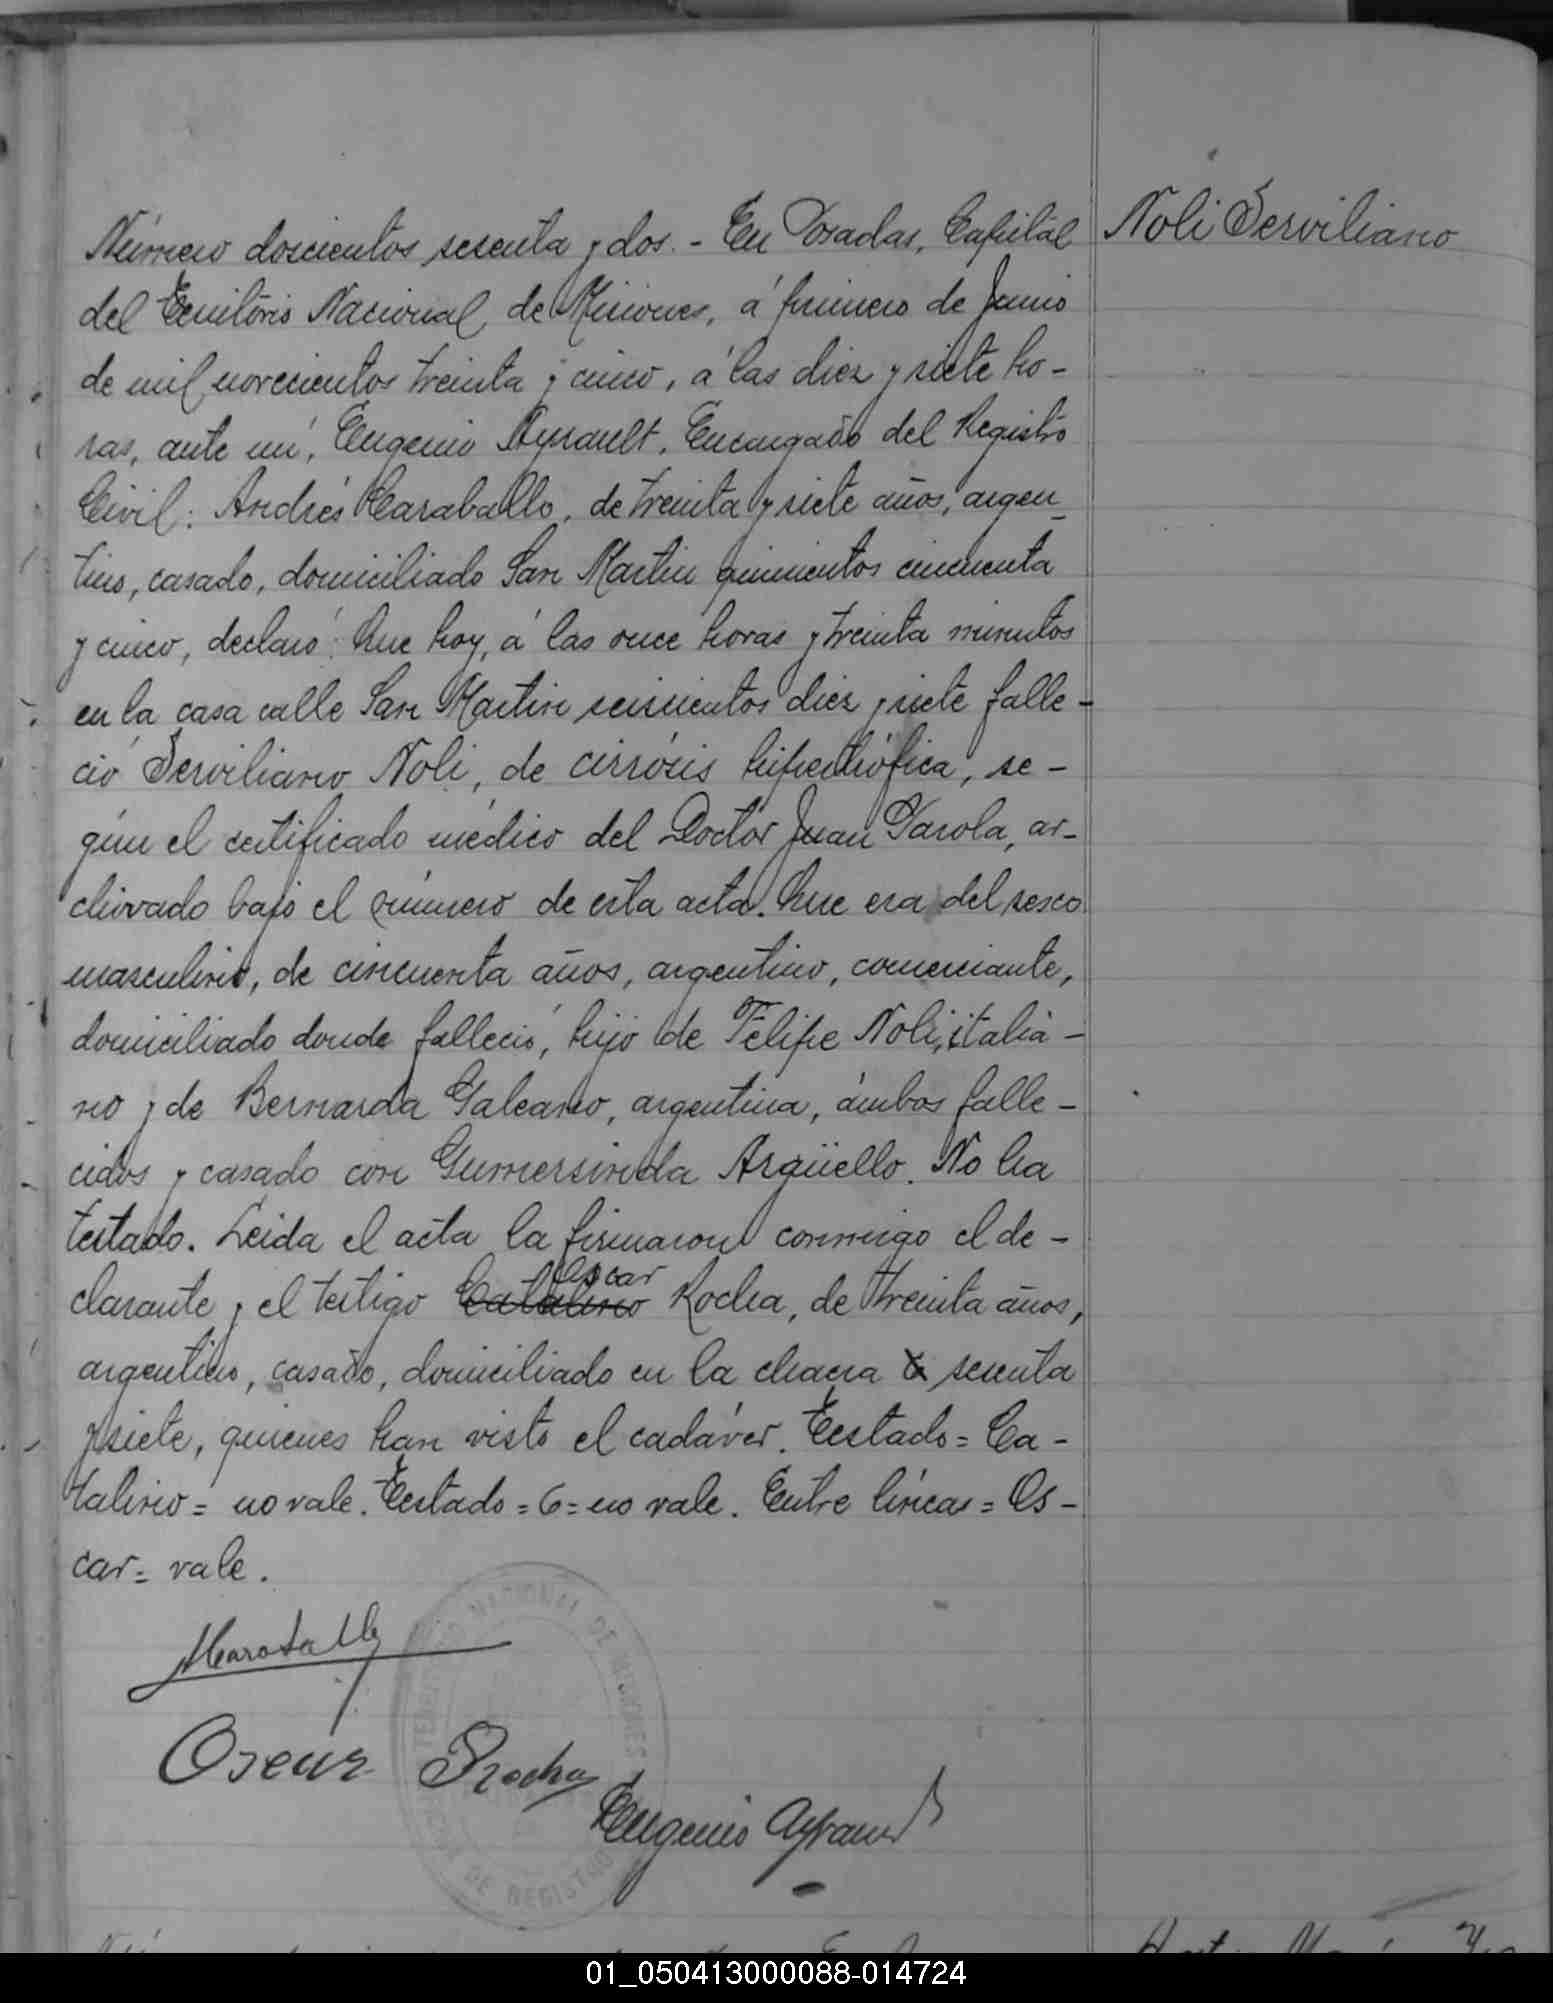 Número doscientos sesenta y dos. - En Posadas, Capital
del Territorio Nacional de Misiones, á primero de Junio
de mil novecientos treinta y cinco, á las diez y siete ho-
ras, ante mí, Eugenio Ayrault, Encargado del Registro
Civil: Andrés Caraballo, de treinta y siete años, argen-
tino, casado, domiciliado San Martin quinientos cincuenta
y cinco, declaró: Que hoy, á las once horas y treinta minutos
en la casa calle San Martin seiscientos diez y siete falle-
ció Serviliano Noli, de cirrósis hipertrófica, se-
gún el certificado médico del Doctor Juan Parola, ar-
chivado bajo el número de esta acta. Que era del sexo
masculino, de cincuenta años, argentino, comerciante,
domiciliado donde falleció, hijo de Felipe Noli, italia-
no y de Bernarda Galeano, argentina, ámbos falle-
cidos y casado con Gumersinda Argüello. No ha
testado. Leida el acta la firmaron conmigo el de-
clarante y el testigo Catalino Oscar Rocha, de treinta años,
argentino, casado, domiciliado en la chacra 6 sesenta
y siete, quienes han visto el cadáver. Testado = Ca-
talino = no vale. Testado = 6 = no vale. Entre líneas = Os-
car = vale.
Noli Serviliano
Oscar Rocha
Eugenio Ayrault
TERRITORIO NACIONAL DE MISIONES
DE REGISTRO
01_050413000088-014724